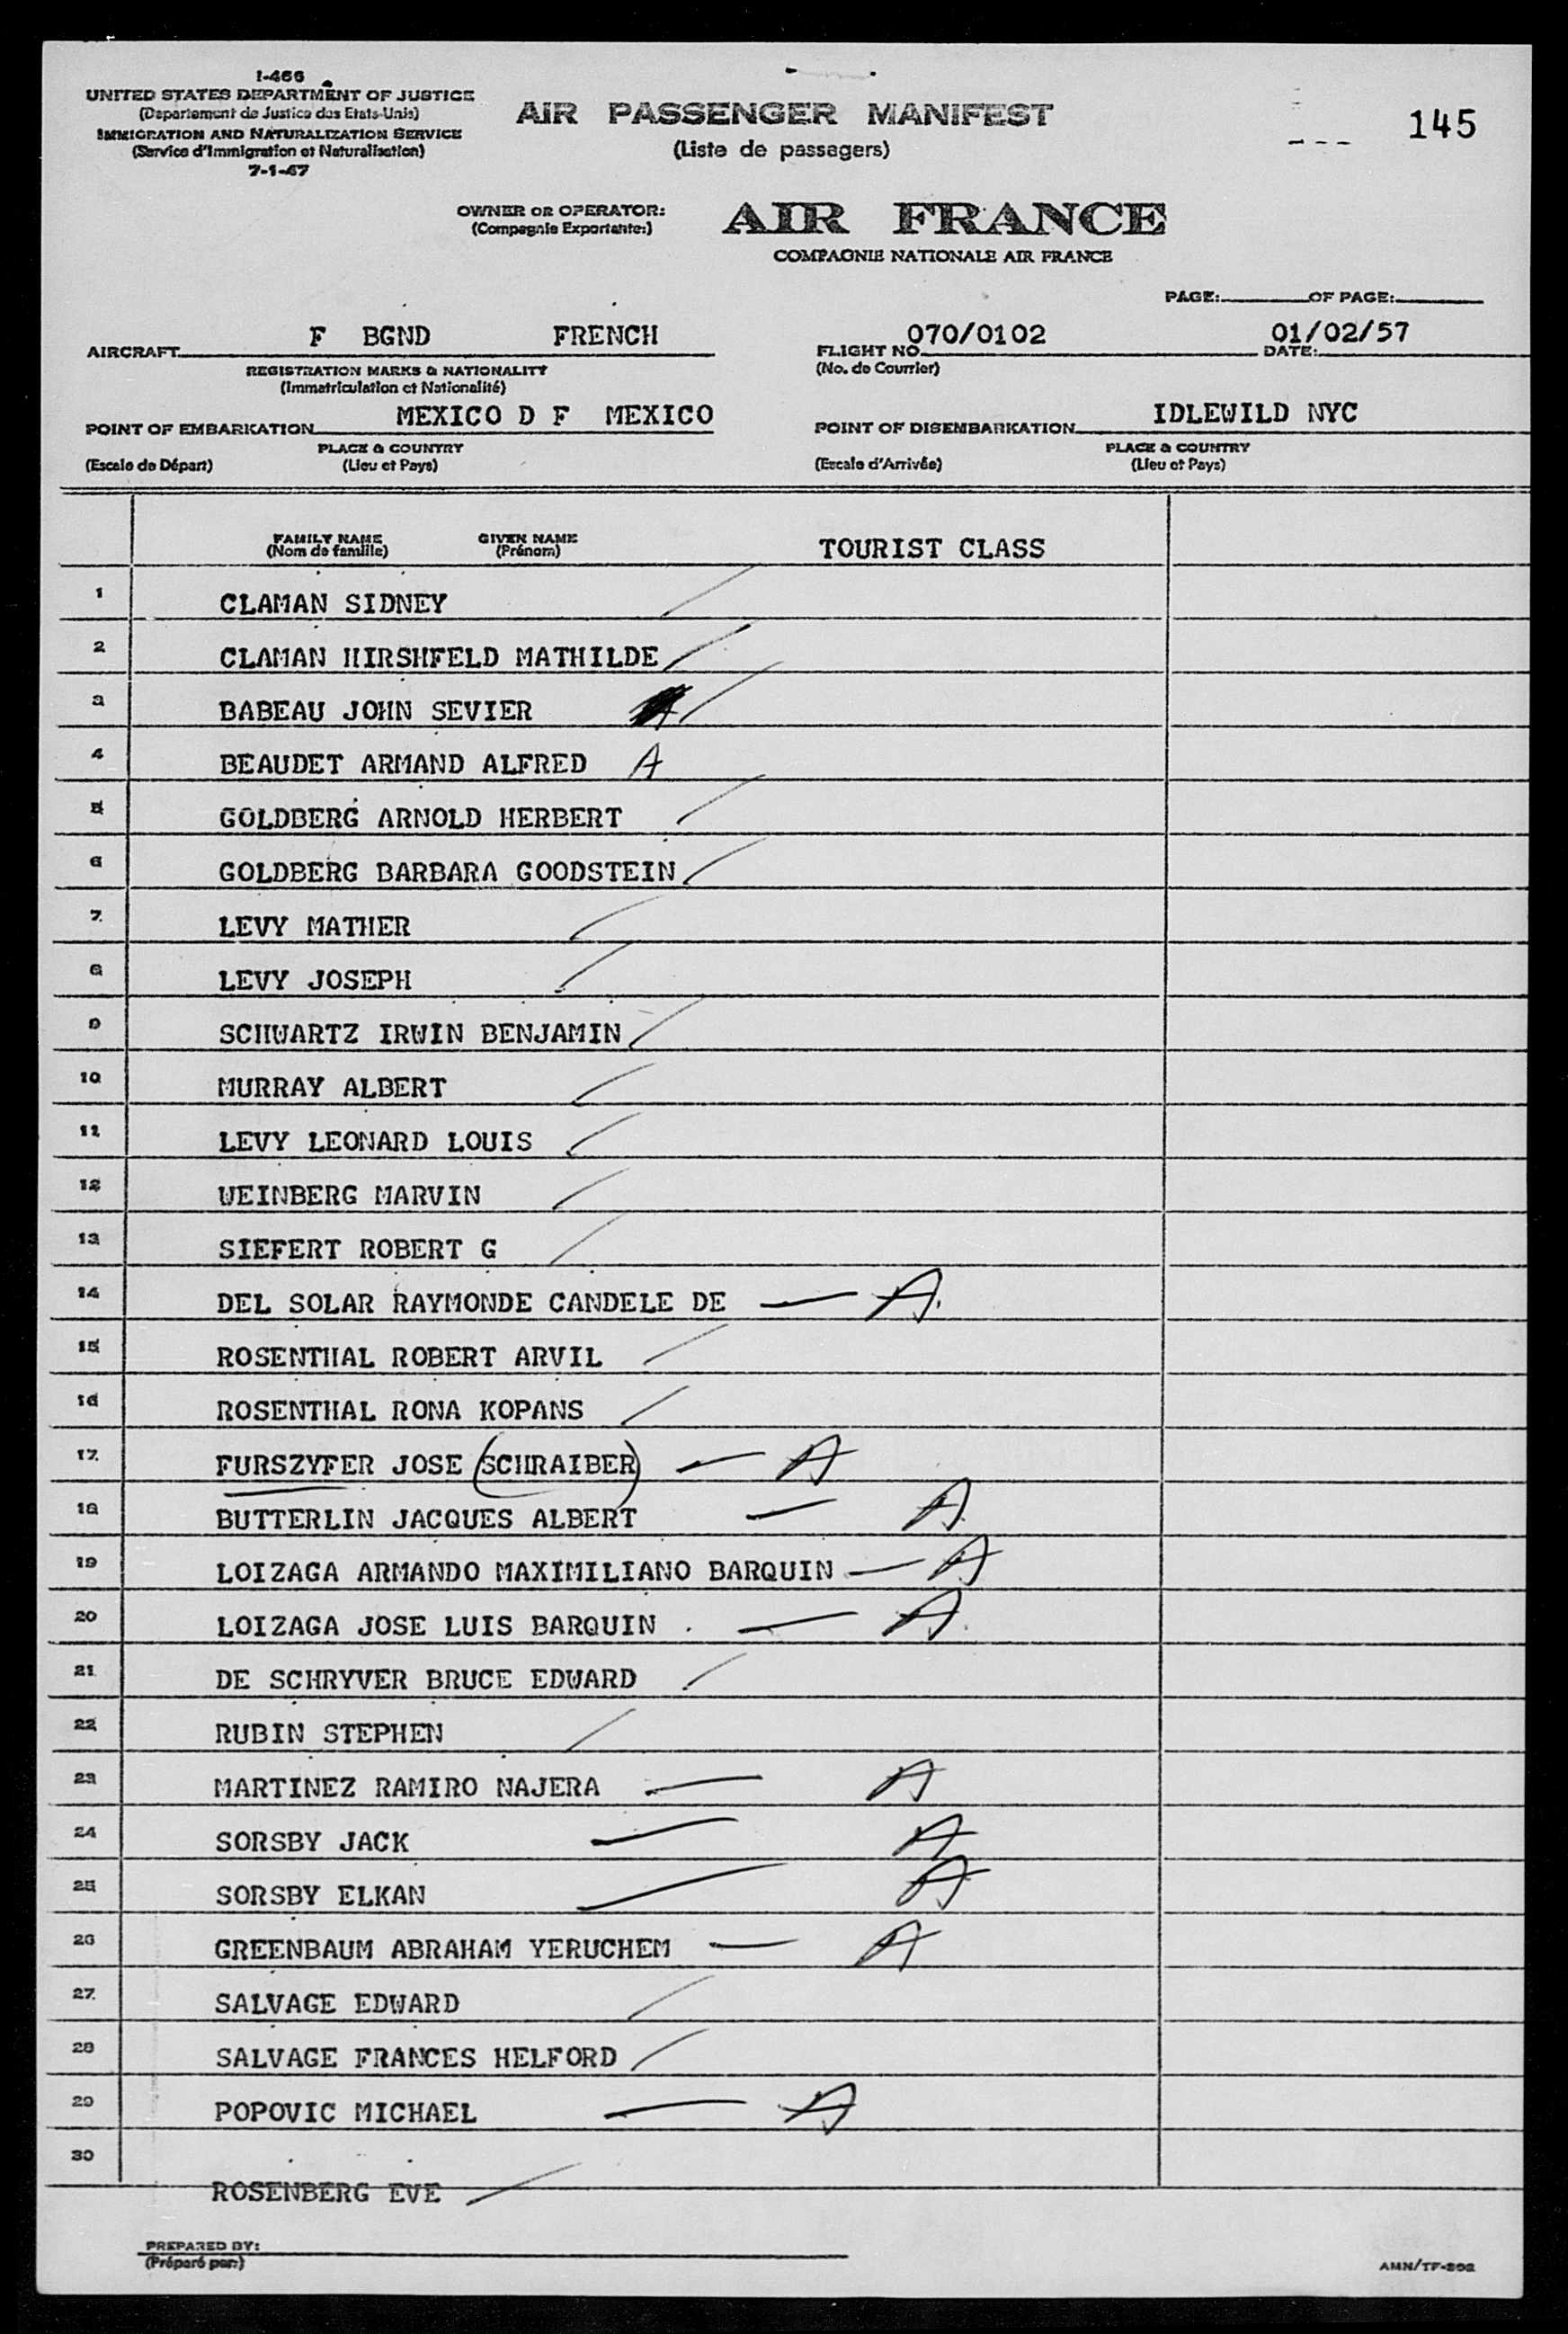 I-466
UNITED STATES DEPARTMENT OF JUSTICE
(Departement de Justice des Etats-Unis)
IMMIGRATION AND NATURALIZATION SERVICE
(Service d'Immigration et Naturalisation)
7-1-47
AIR PASSENGER MANIFEST
(Liste de passagers)
145
OWNER OR OPERATOR: AIR FRANCE
(Compagnie Exportante:)
COMPAGNIE NATIONALE AIR FRANCE
PAGE: OF PAGE:
AIRCRAFT F BGND FRENCH
REGISTRATION MARKS & NATIONALITY
(Immatriculation et Nationalité)
FLIGHT NO. 070/0102 DATE: 01/02/57
(No. de Courrier)
POINT OF EMBARKATION MEXICO D F MEXICO
PLACE & COUNTRY
(Escale de Départ) (Lieu et Pays)
POINT OF DISEMBARKATION IDLEWILD NYC
PLACE & COUNTRY
(Escale d'Arrivée) (Lieu et Pays)
FAMILY NAME GIVEN NAME
(Nom de famille) (Prénom)
TOURIST CLASS
1 CLAMAN SIDNEY
2 CLAMAN HIRSHFELD MATHILDE
3 BABEAU JOHN SEVIER
4 BEAUDET ARMAND ALFRED A
5 GOLDBERG ARNOLD HERBERT
6 GOLDBERG BARBARA GOODSTEIN
7 LEVY MATHER
8 LEVY JOSEPH
9 SCHWARTZ IRWIN BENJAMIN
10 MURRAY ALBERT
11 LEVY LEONARD LOUIS
12 WEINBERG MARVIN
13 SIEFERT ROBERT G
14 DEL SOLAR RAYMONDE CANDELE DE — A
15 ROSENTHAL ROBERT ARVIL
16 ROSENTHAL RONA KOPANS
17 FURSZYFER JOSE (SCHRAIBER) — A
18 BUTTERLIN JACQUES ALBERT — A
19 LOIZAGA ARMANDO MAXIMILIANO BARQUIN — A
20 LOIZAGA JOSE LUIS BARQUIN . — A
21 DE SCHRYVER BRUCE EDWARD
22 RUBIN STEPHEN
23 MARTINEZ RAMIRO NAJERA — A
24 SORSBY JACK — A
25 SORSBY ELKAN — A
26 GREENBAUM ABRAHAM YERUCHEM — A
27 SALVAGE EDWARD
28 SALVAGE FRANCES HELFORD
29 POPOVIC MICHAEL — A
30 ROSENBERG EVE
PREPARED BY:
(Préparé par:)